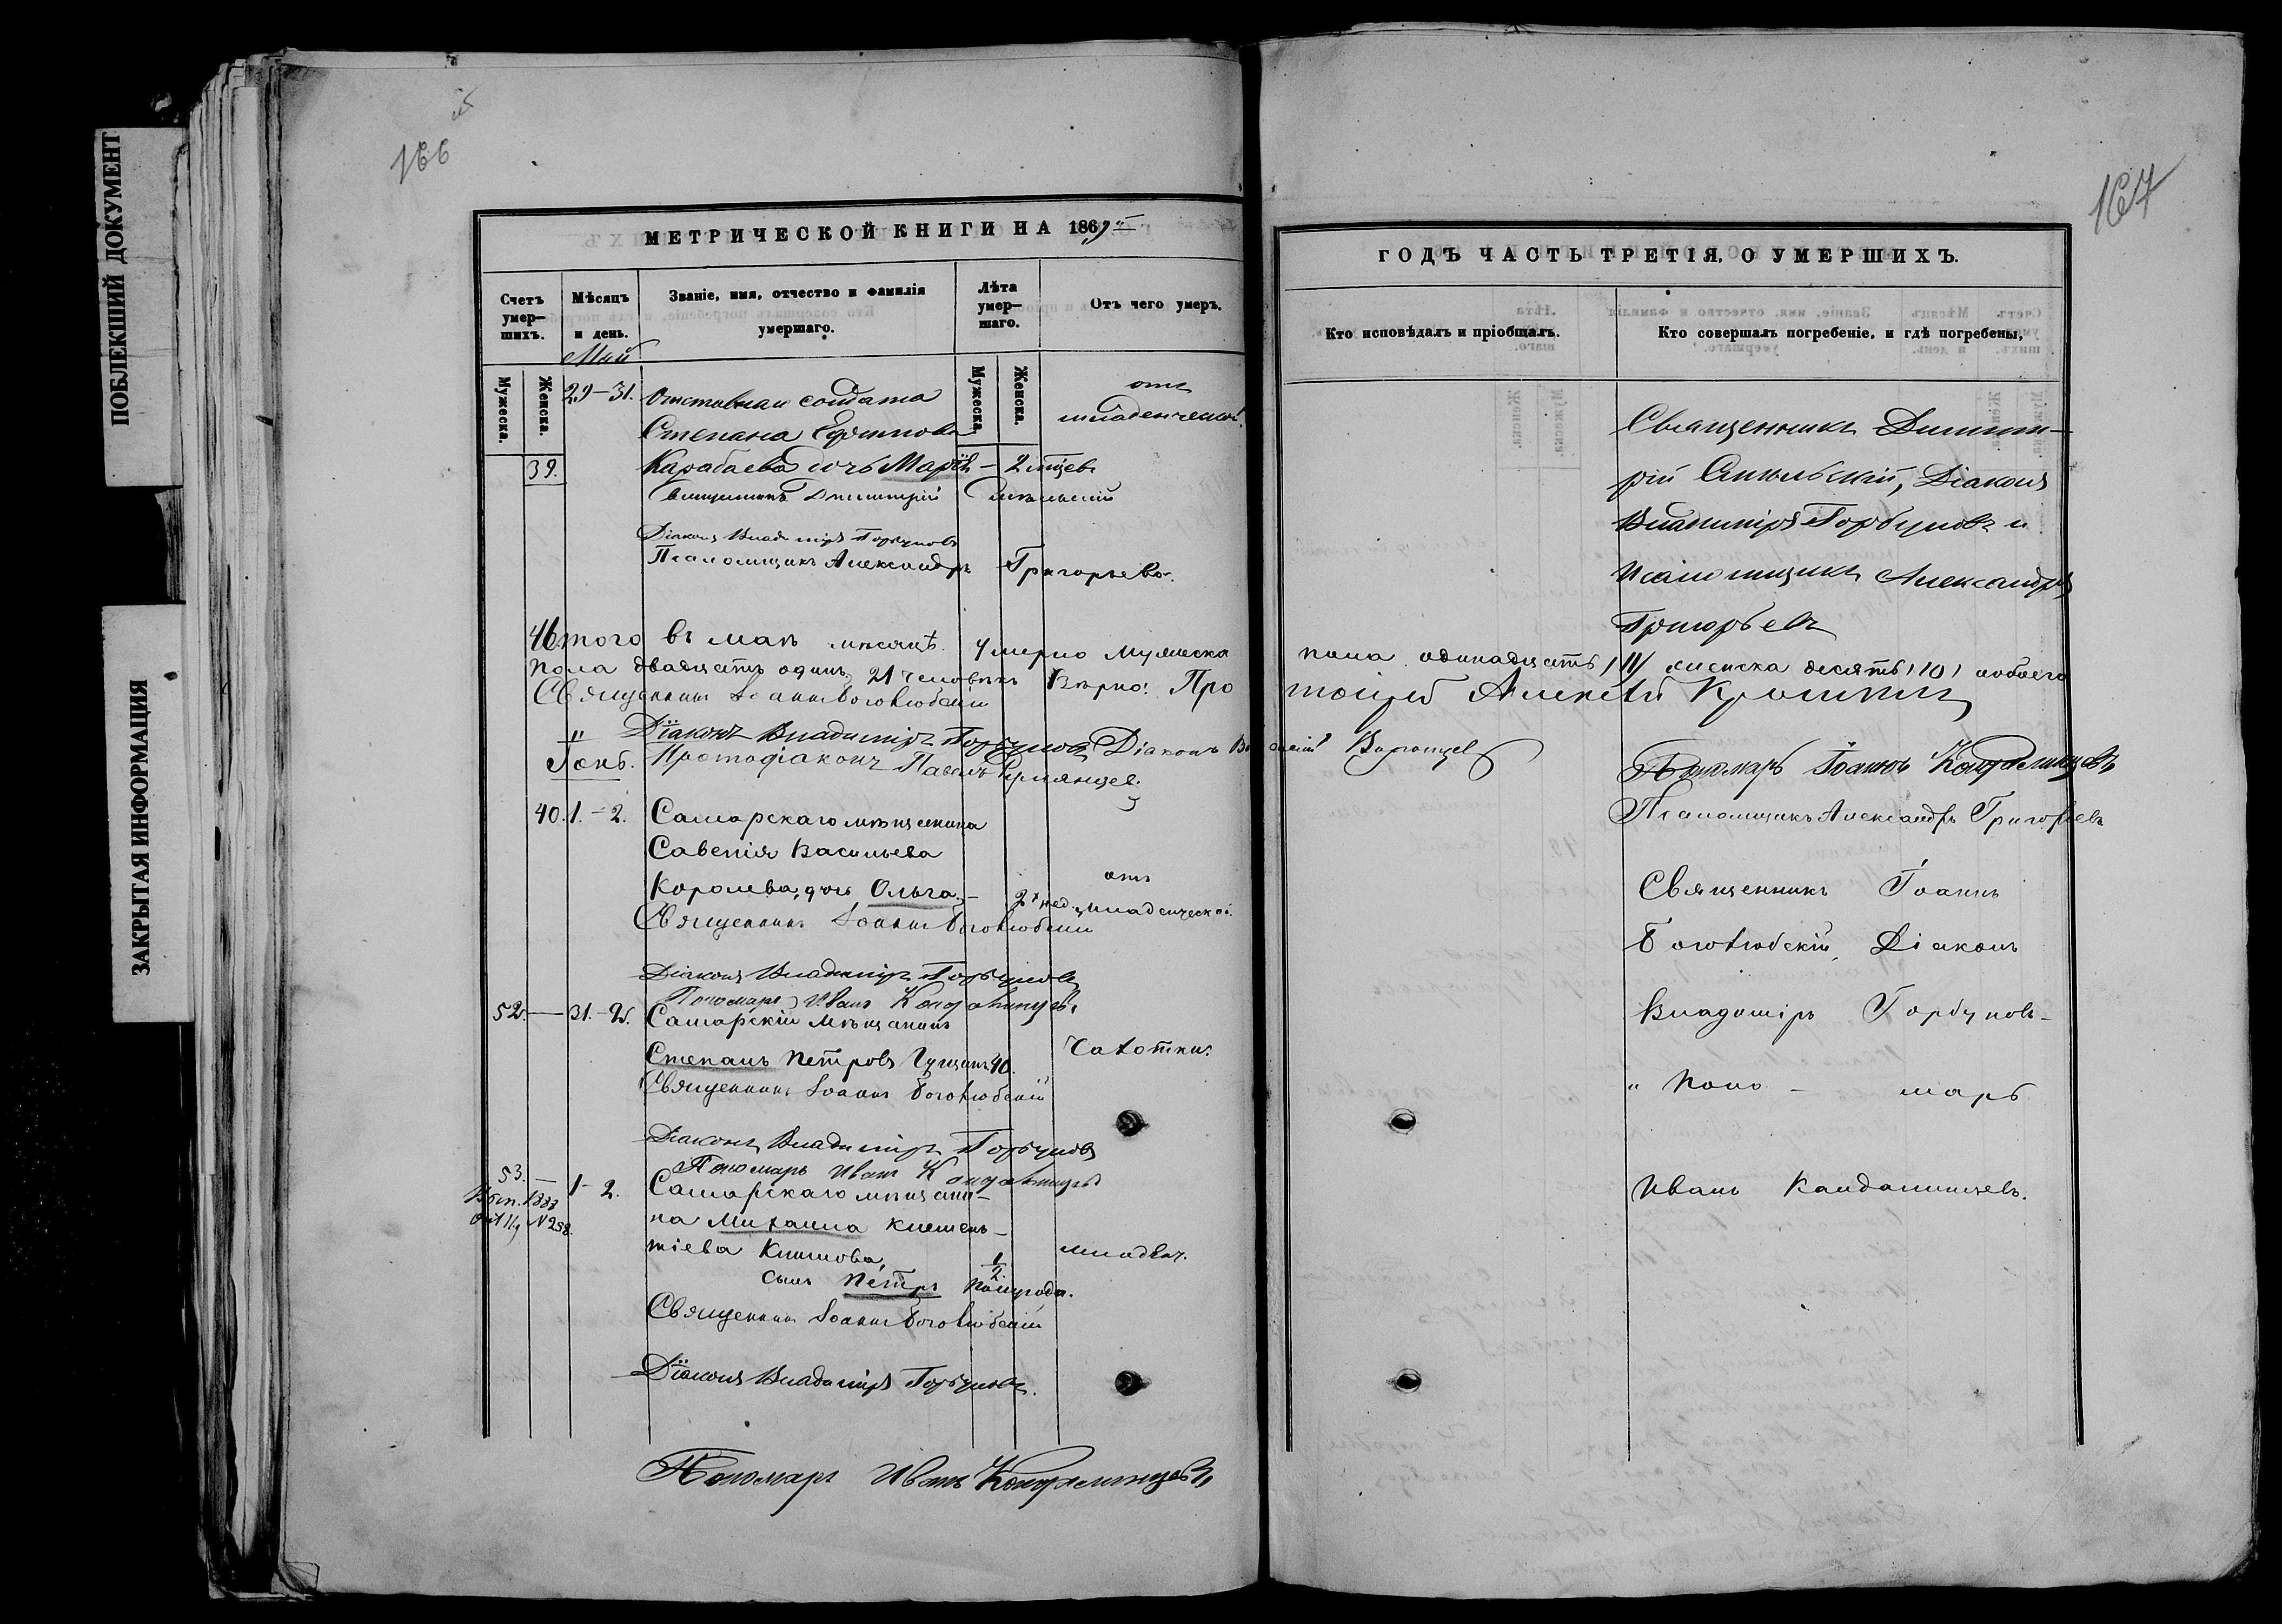 ПОБЛЕКШИЙ ДОКУМЕНТ
ЗАКРЫТАЯ ИНФОРМАЦИЯ
166
МЕТРИЧЕСКОЙ КНИГИ НА 1869
Счетъ умер-шихъ.
Мѣсяцъ и день.
Званіе, имя, отчество и фамилія умершаго.
Лѣта умер-шаго.
Отъ чего умеръ.
Мужеска.
Женска.
Мужеска.
Женска.
Май
29-31. Отставнаго солдата
Степана Ефимова
39. Карабаева дочь Марія - 2 мѣсяцевъ
отъ
младенческой.
Священникъ Димитрій
Діаконъ Владиміръ Горбуновъ
Псаломщикъ Александръ Григорьевъ.
Итого въ маѣ мѣсяцѣ умерло Мужеска
пола двадцать одинъ 21 человѣкъ Вѣрно: Про
Священникъ Іоаннъ Боголюбскій
Діаконъ Владиміръ Горбуновъ Діаконъ
Іюнь. Протодіаконъ Павелъ Румянцев.
40. 1.-2. Самарскаго мѣщанина
Савелія Васильева
Королева, дочь Ольга, - 2 нед.
отъ
младенческой.
Священникъ Іоаннъ Боголюбскій
Діаконъ Владиміръ Горбуновъ
Пономарь Иванъ Кондалинцевъ
52. — 31.-2. Самарскій мѣщанинъ
Степанъ Петровъ 40. Чахотки.
Священникъ Іоаннъ Боголюбскій
Діаконъ Владиміръ Горбуновъ
Пономарь Иванъ Кондалинцевъ
53. — 1-2. Самарскаго мѣщани-
№ 258.
на Михаила Клемен-
тіева Климова, младенч.
сынъ Петръ 1/2 полугода.
Священникъ Іоаннъ Боголюбскій
Діаконъ Владиміръ Горбуновъ.
Пономарь Иванъ Кондалинцевъ
167
ГОДЪ ЧАСТЬ ТРЕТІЯ, О УМЕРШИХЪ.
Кто исповѣдалъ и пріобщалъ.
Кто совершалъ погребеніе, и гдѣ погребены,
Священникъ Димит-
рій Діаконъ
Владиміръ Горбуновъ и
псаломщикъ Александръ
Григорьевъ
пола одинадцать (11) женска десять (10) обоего
тоіерей Алексѣй
Воронцев
Пономарь Іоаннъ Кондалинцевъ
Псаломщикъ Александръ Григорьевъ
Священникъ Іоаннъ
Боголюбскій, Діаконъ
Владиміръ Горбуновъ-
" Поно - марь
Иванъ Кандалинцевъ.